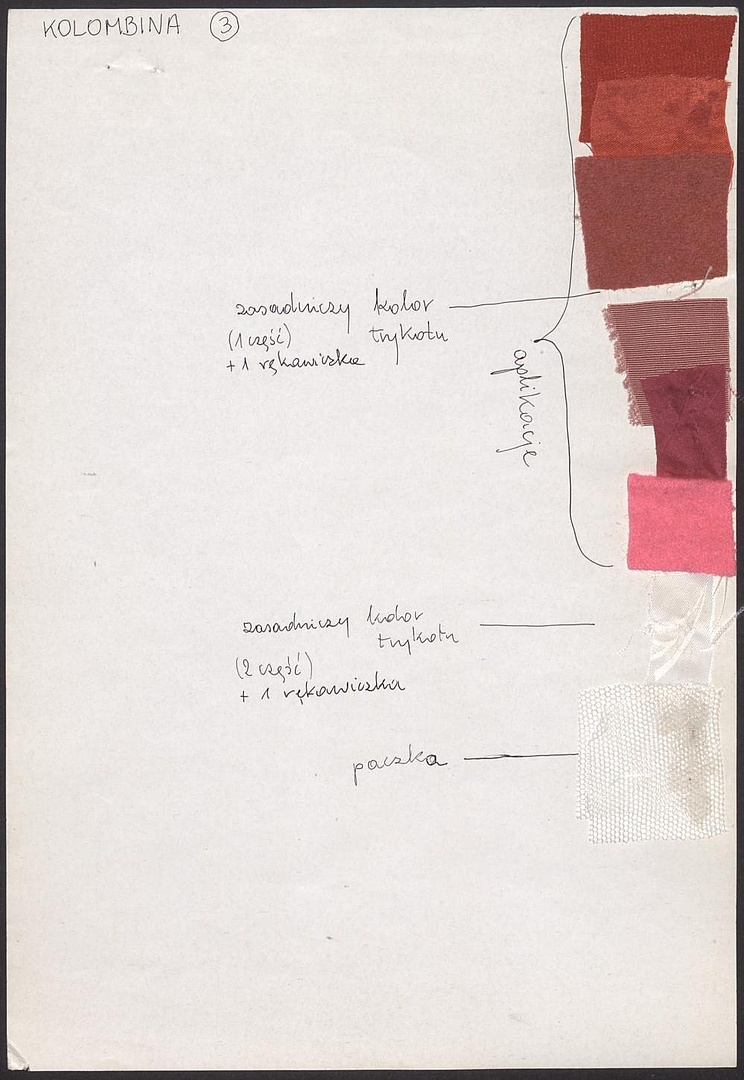 KOLOMBINA 3
zasadniczy kolor
(1 część) trykotu
+ 1 rękawiczka
aplikacje
zasadniczy kolor
trykotu
(2 część)
+ 1 rękawiczka
paczka